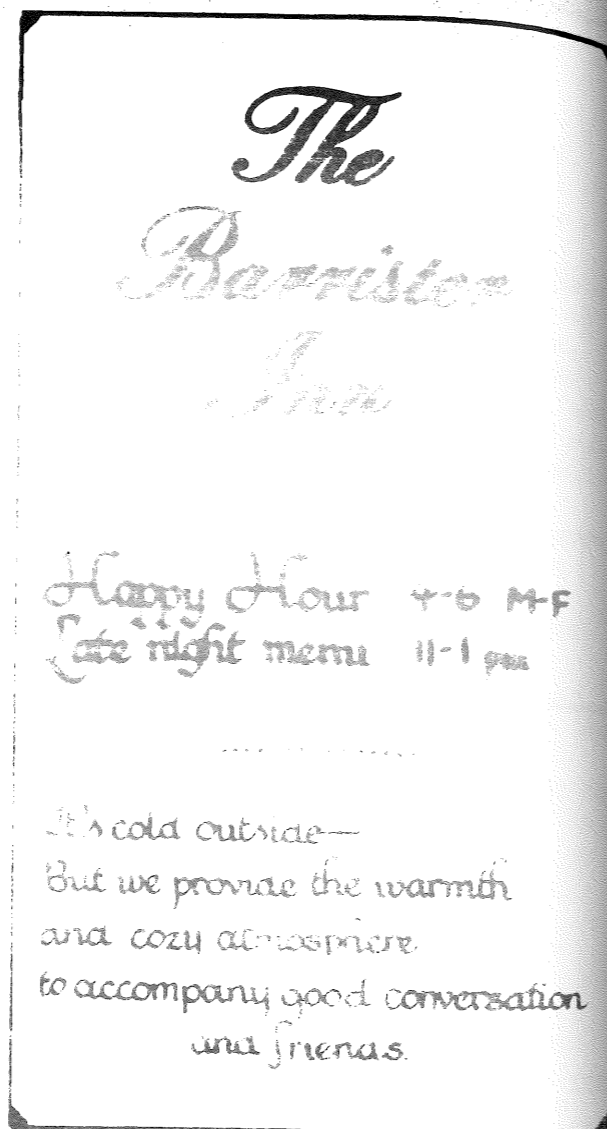 The
Barrister
Inn
Happy Hour 4-6 M-F
Late night menu 11-1 pm
It's cold outside—
But we provide the warmth
and cozy atmosphere
to accompany good conversation
and friends.